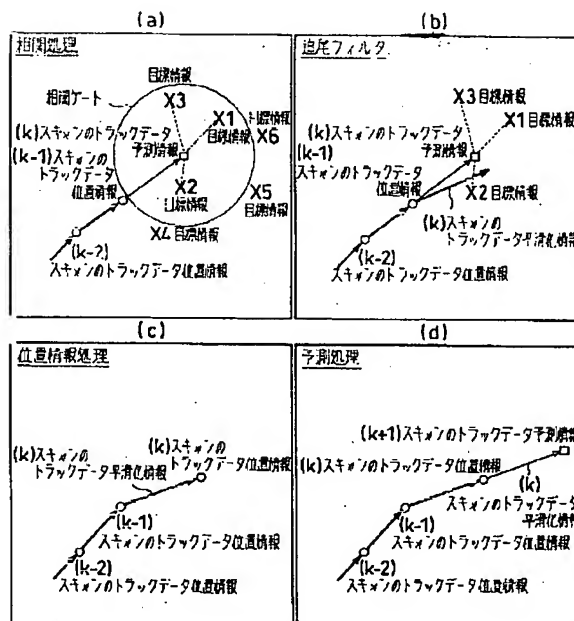 (a)
相関処理
目標情報
相関ゲート
X3
X1
目標情報
目標情報
X6
(k)スキャンのトラックデータ
予測情報
(k-1)スキャンの
トラックデータ
位置情報
X2
目標情報
X5
目標情報
X4目標情報
(k-2)
スキャンのトラックデータ位置情報
(b)
追尾フィルタ
X3目標情報
X1目標情報
(k)スキャンのトラックデータ
予測情報
(k-1)
スキャンのトラックデータ
位置情報
X2目標情報
(k)スキャンの
トラックデータ平滑化情報
(k-2)
スキャンのトラックデータ位置情報
(c)
位置情報処理
(k)スキャンの
トラックデータ平滑化情報
(k)スキャンの
トラックデータ位置情報
(k-1)
スキャンのトラックデータ位置情報
(k-2)
スキャンのトラックデータ位置情報
(d)
予測処理
(k+1)スキャンのトラックデータ予測情報
(k)スキャンのトラックデータ位置情報
(k)
スキャンのトラックデータ
平滑化情報
(k-1)
スキャンのトラックデータ位置情報
(k-2)
スキャンのトラックデータ位置情報